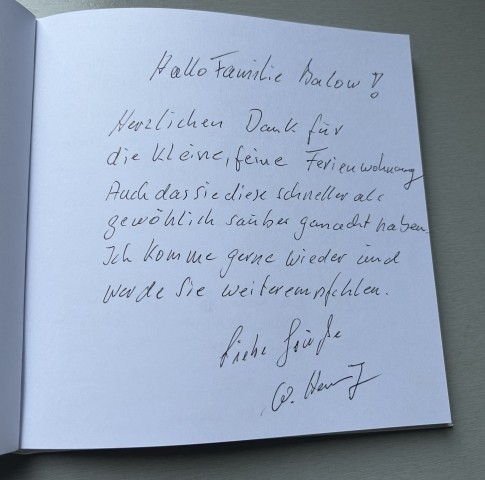 Hallo Familie Balow!
Herzlichen Dank für
die kleine, feine Ferienwohnung
Auch das sie diese schneller als
gewöhlich sauber gemacht haben.
Ich komme gerne wieder und
werde Sie weiterempfehlen.
Liebe Grüße
W.